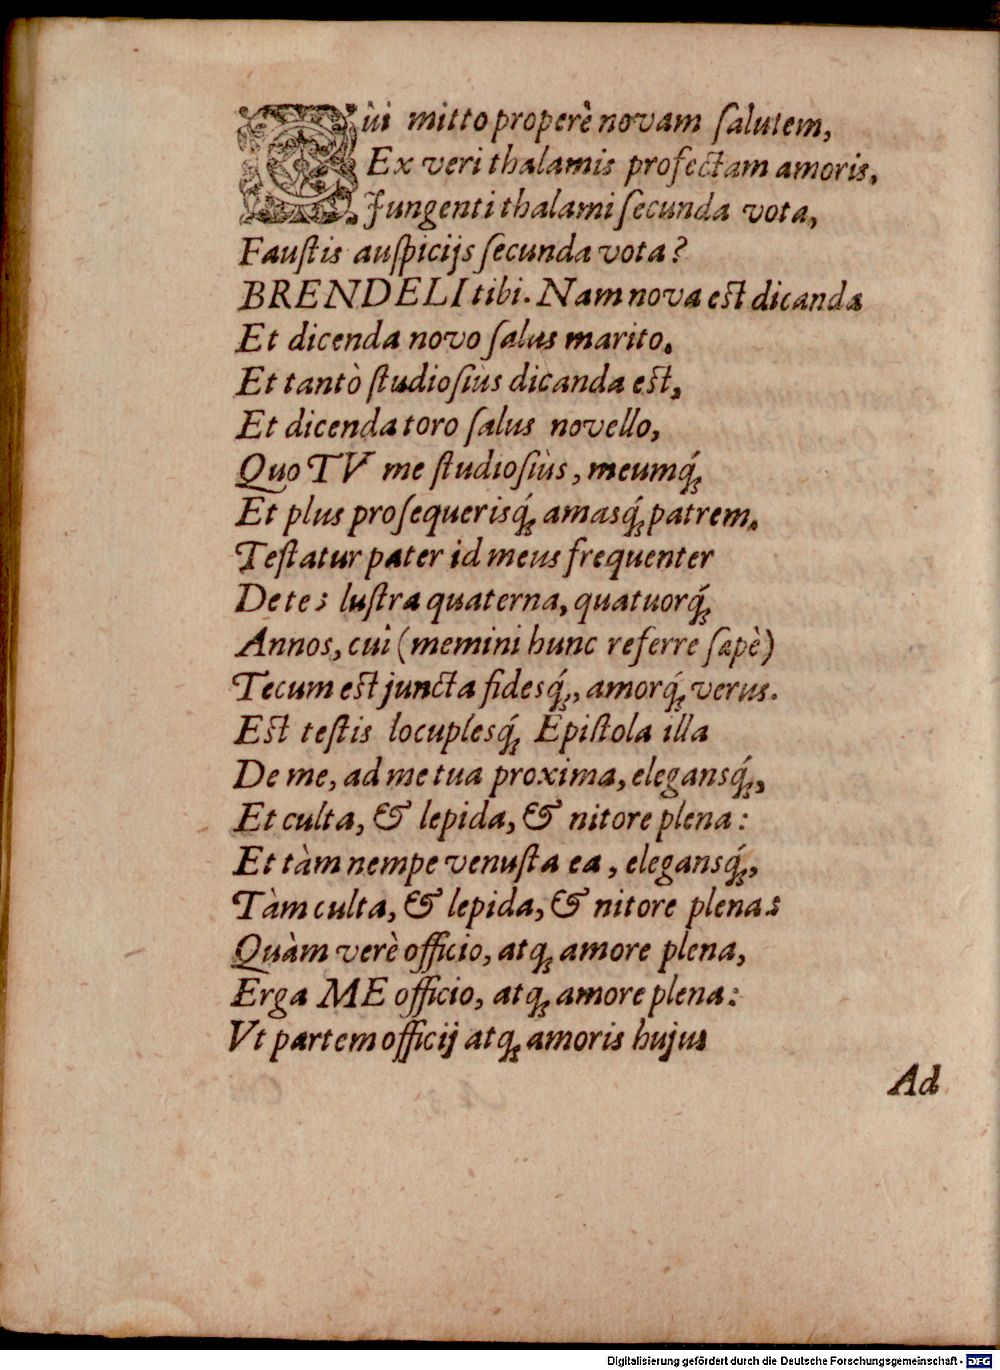 Cùi mitto properè novam ſalutem,
Ex veri thalamis profectam amoris,
Jungenti thalami ſecunda vota,
Fauſtis auſpicijs ſecunda vota?
BRENDELI tibi. Nam nova eſt dicanda
Et dicenda novo ſalus marito.
Et tantò ſtudioſiùs dicanda eſt,
Et dicenda toro ſalus novello,
Quo TV me ſtudioſiùs, meumq́;
Et plus proſequerisq́; amasq́; patrem.
Teſtatur pater id meus frequenter
De te; luſtra quaterna, quatuorq́;
Annos, cui (memini hunc referre ſæpè)
Tecum eſt juncta fidesq́;, amorq́; verus.
Eſt teſtis locuplesq́; Epiſtola illa
De me, ad me tua proxima, elegansq́;,
Et culta, & lepida, & nitore plena:
Et tàm nempe venuſta ea, elegansq́;,
Tàm culta, & lepida, & nitore plena:
Quàm verè officio, atq; amore plena,
Erga ME officio, atq; amore plena:
Vt partem officij atq; amoris hujus
Ad
Digitalisierung gefördert durch die Deutsche Forschungsgemeinschaft - DFG